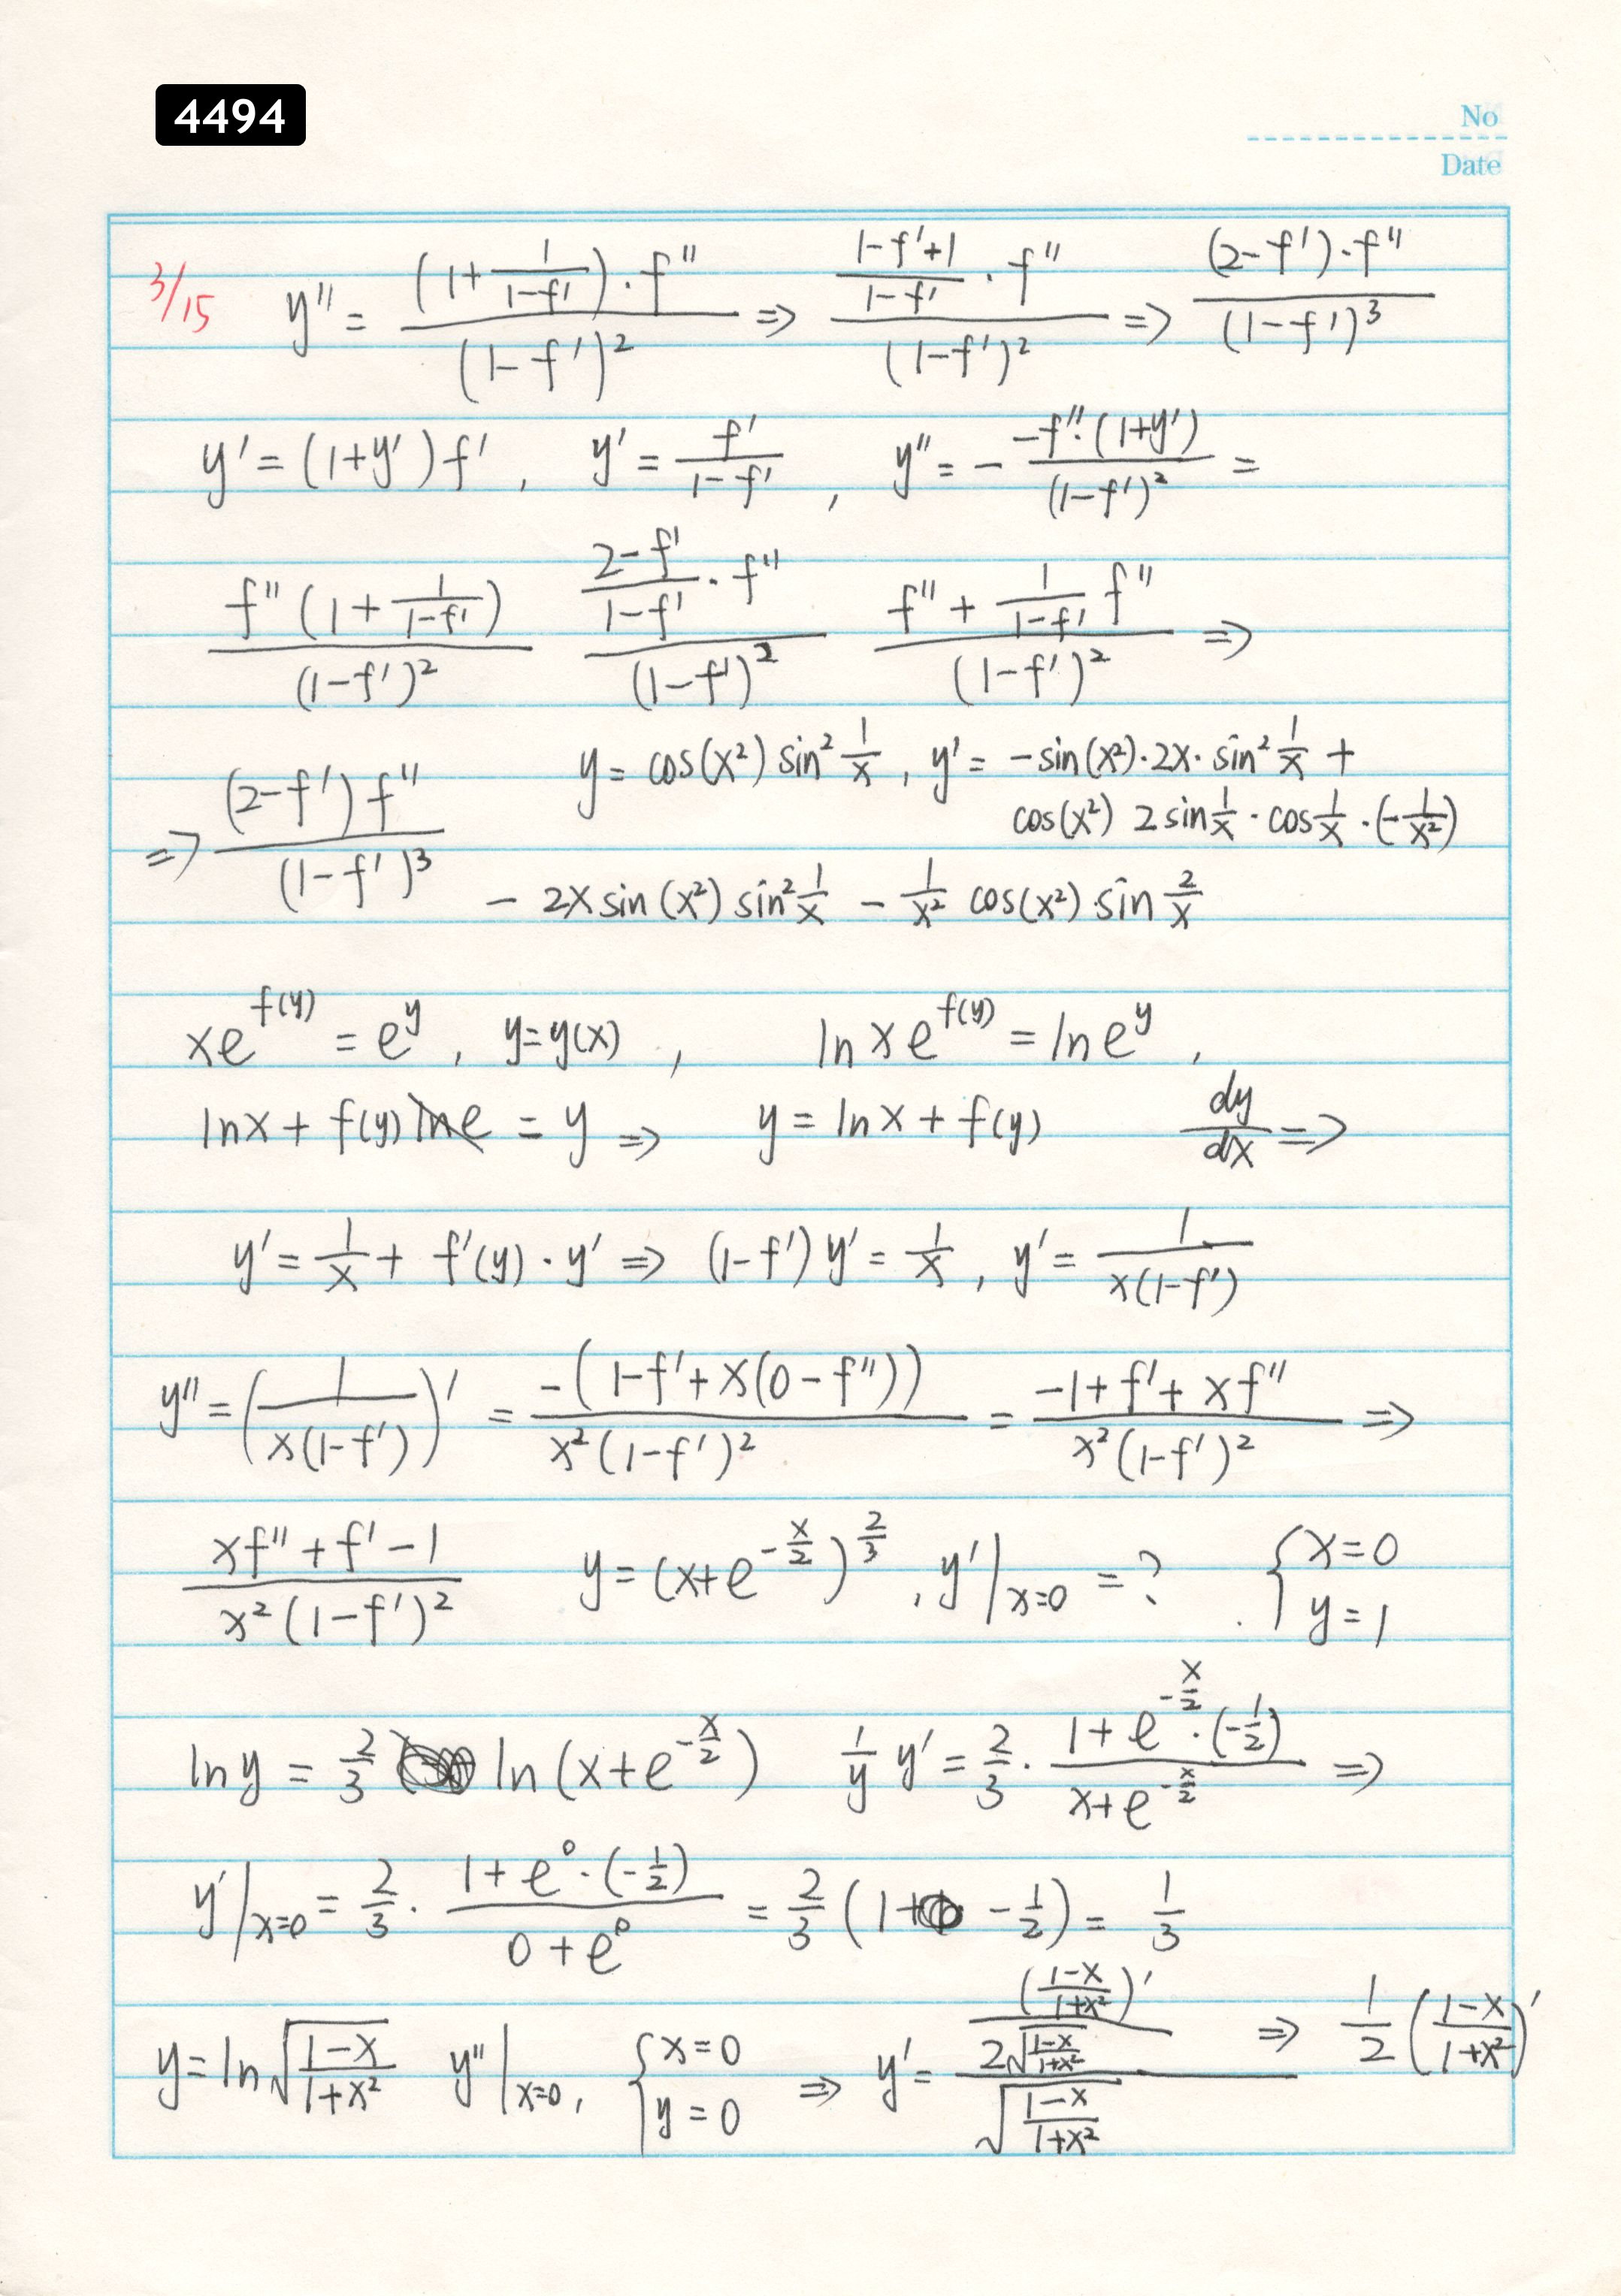 4494
No
Date
3/15 y'' = \frac{(1+\frac{1}{1-f'})·f''}{(1-f')^2} ⇒ \frac{\frac{1-f'+1}{1-f'}·f''}{(1-f')^2} ⇒ \frac{(2-f')·f''}{(1-f')^3}
y' = (1+y')f' , y' = \frac{f'}{1-f'} , y'' = -\frac{-f''·(1+y')}{(1-f')^2} =
\frac{f''(1+\frac{1}{1-f'})}{(1-f')^2} \frac{\frac{2-f'}{1-f'}·f''}{(1-f')^2} \frac{f''+\frac{1}{1-f'}f''}{(1-f')^2} ⇒
⇒ \frac{(2-f')f''}{(1-f')^3} y = cos(x^2) sin^2\frac{1}{x} , y' = -sin(x^2)·2x·sin^2\frac{1}{x} +
cos(x^2) 2sin\frac{1}{x}·cos\frac{1}{x}·(-\frac{1}{x^2})
- 2x sin(x^2) sin^2\frac{1}{x} - \frac{1}{x^2} cos(x^2)·sin\frac{2}{x}
xe^{f(y)} = e^y , y=y(x) , ln xe^{f(y)} = ln e^y ,
lnx + f(y) lne = y ⇒ y = lnx + f(y) \frac{dy}{dx} ⇒
y' = \frac{1}{x} + f'(y)·y' ⇒ (1-f')y' = \frac{1}{x} , y' = \frac{1}{x(1-f')}
y'' = (\frac{1}{x(1-f')})' = \frac{-(1-f'+x(0-f''))}{x^2(1-f')^2} = \frac{-1+f'+xf''}{x^2(1-f')^2} ⇒
\frac{xf''+f'-1}{x^2(1-f')^2} y = (x+e^{-\frac{x}{2}})^{\frac{2}{3}} , y'|_{x=0} = ? { x=0 y=1
ln y = \frac{2}{3} ln(x+e^{-\frac{x}{2}}) \frac{1}{y} y' = \frac{2}{3}·\frac{1+e^{-\frac{x}{2}}·(-\frac{1}{2})}{x+e^{-\frac{x}{2}}} ⇒
y'|_{x=0} = \frac{2}{3}·\frac{1+e^0·(-\frac{1}{2})}{0+e^0} = \frac{2}{3}(1+ -\frac{1}{2}) = \frac{1}{3}
y = ln\sqrt{\frac{1-x}{1+x^2}} y''|_{x=0} , { x=0 y=0 ⇒ y' = \frac{\frac{(\frac{1-x}{1+x^2})'}{2\sqrt{\frac{1-x}{1+x^2}}}}{\sqrt{\frac{1-x}{1+x^2}}} ⇒ \frac{1}{2}(\frac{1-x}{1+x^2})'